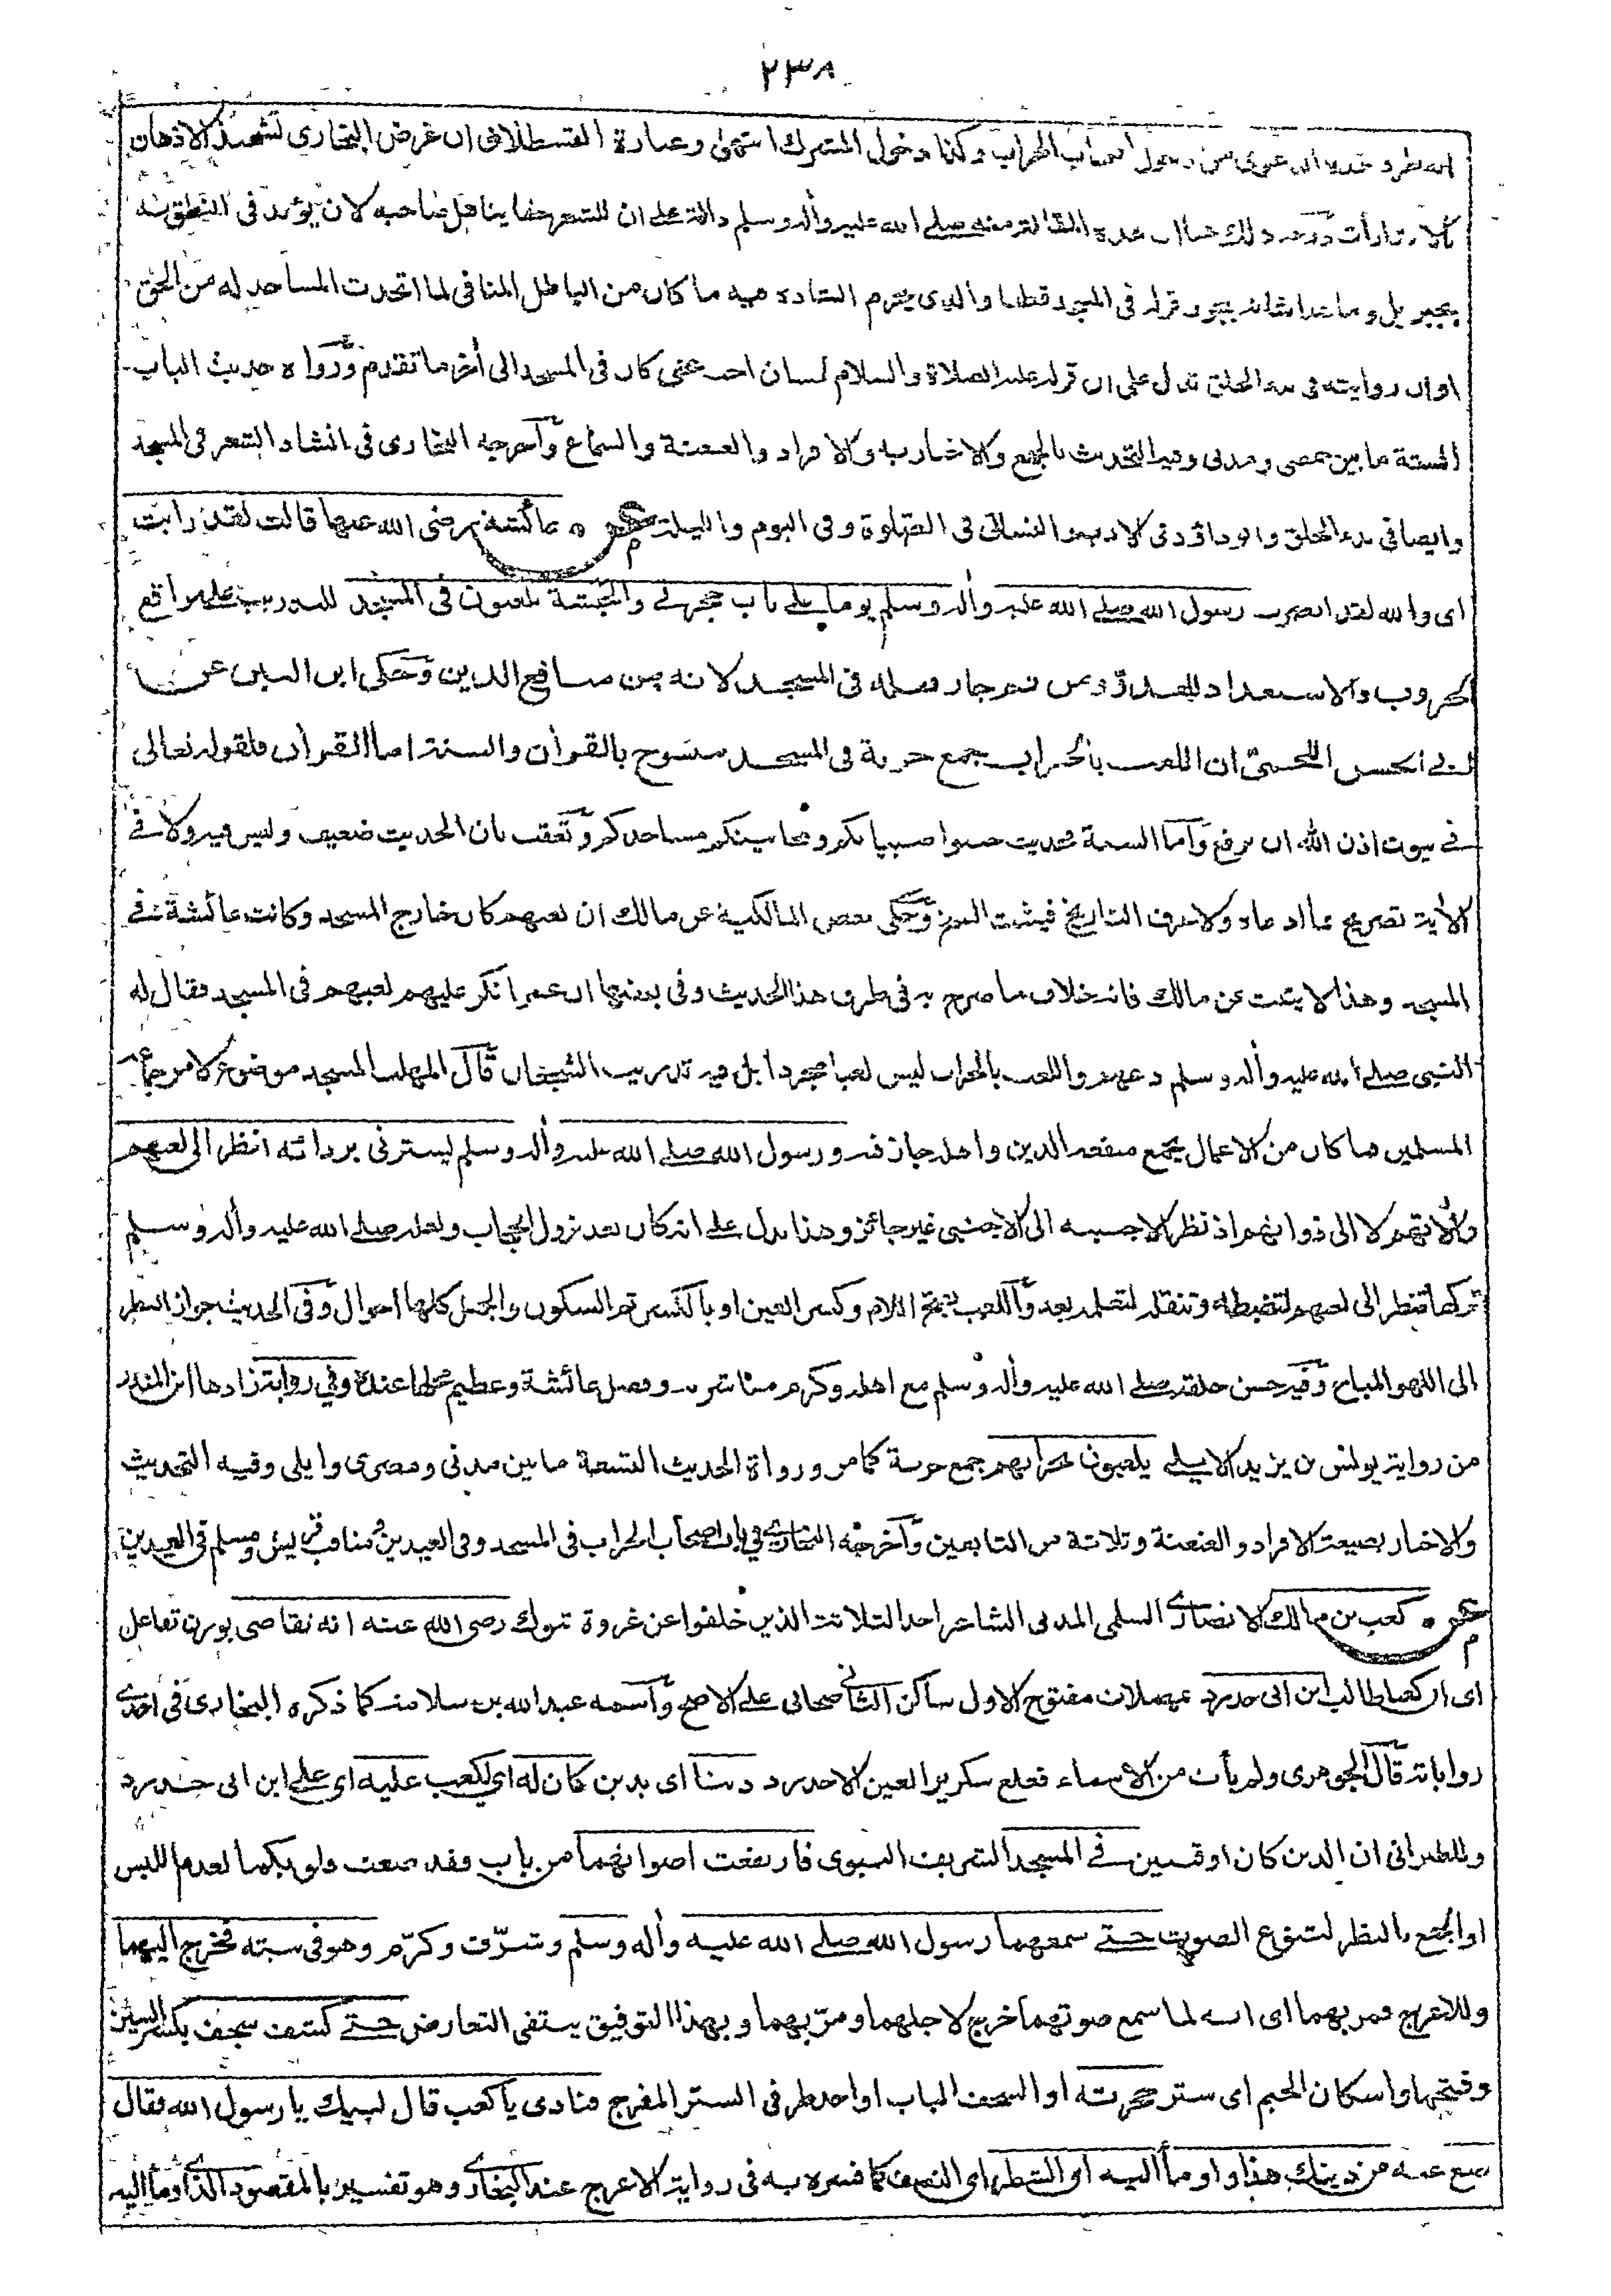 ٢٣٨
من دخول اصحاب الحراب وكذا دخول المشرك انتهى وعبارة القسطلانى ان غرض البخارى تشحيذ الاذهان
بالاشارات ذلك ان هذه المقالة منه صلى الله عليه وأله وسلم دالة على ان للشعر حقا يتأهل صاحبه لان يؤيد فى النطق به
بجبريل وما هذا شانه يجوز قوله فى المسجد قطعا والذى يحرم انشاده فيه ما كان من الباطل المنافى لما اتخذت المساجد له من الحق
او ان روايته فى بدء الخلق تدل على ان قوله عليه الصلاة والسلام لحسان اجب عنى كان فى المسجد الى أخر ما تقدم ورواة حديث الباب
الستة ما بين حمصى ومدنى وفيه التحديث بالجمع والاخبار به والافراد والعنعنة والسماع وأخرجه البخارى فى انشاد الشعر فى المسجد
وايضا فى بدء الخلق وابو داؤد فى الادب والنسائى فى الصلوة وفى اليوم والليلة عن عائشة رضى الله عنها قالت لقد رايت
اى والله لقد ابصرت رسول الله صلى الله عليه وأله وسلم يوما على باب حجرتى والحبشة يلعبون فى المسجد للتدريب على مواقع
الحروب والاستعداد للعدو ومن ثم جاز فعله فى المسجد لانه من منافع الدين وحكى ابن التين عن
ابى الحسن اللخمى ان اللعب بالحراب جمع حربة فى المسجد منسوخ بالقرأن والسنة اما القرأن فلقوله تعالى
فى بيوت اذن الله ان ترفع وأما السنة فحديث جنبوا صبيانكم ومجانينكم مساجدكم وتعقب بان الحديث ضعيف وليس فيه ولا فى
الأية تصريح بما ادعاه ولا عرف التاريخ فيثبت النسخ وحكى بعض المالكية عن مالك ان لعبهم كان خارج المسجد وكانت عائشة فى
المسجد وهذا لا يثبت عن مالك فانه خلاف ما صرح به فى طرق هذا الحديث وفى بعضها ان عمر انكر عليهم لعبهم فى المسجد فقال له
النبى صلى الله عليه وأله وسلم دعهم واللعب بالحراب ليس لعبا مجردا بل فيه تدريب الشجعان قال المهلب المسجد موضوع لامر جماعة
المسلمين فما كان من الاعمال يجمع منفعة الدين واهله جاز فيه ورسول الله صلى الله عليه وأله وسلم يسترنى بردائه انظر الى لعبهم
وألاتهم لا الى ذواتهم اذ نظر الاجنبية الى الاجنبى غير جائز وهذا يدل على انه كان بعد نزول الحجاب ولعله صلى الله عليه وأله وسلم
تركها تنظر الى لعبهم لتضبطه وتنقله لتعلمه بعد واللعب بفتح اللام وكسر العين او بالكسر ثم السكون والجمل كلها احوال وفى الحديث جواز النظر
الى اللهو المباح وفيه حسن خلقه صلى الله عليه وأله وسلم مع اهله وكرم معاشرته وفضل عائشة وعظيم محلها عنده وفى رواية زادها ابن المنذر
من رواية يونس بن يزيد الايلى يلعبون بحرابهم جمع حربة كما مر ورواة الحديث التسعة ما بين مدنى ومصرى وايلى وفيه التحديث
والاخبار بصيغة الافراد والعنعنة وثلاثة من التابعين وأخرجه البخارى فى باب اصحاب الحراب فى المسجد وفى العيدين ومناقب قريش ومسلم فى العيدين
عن كعب بن مالك الانصارى السلمى المدنى الشاعر احد الثلاثة الذين خلفوا عن غزوة تبوك رضى الله عنه انه تقاضى بوزن تفاعل
اى ان كعبا طالب ابن ابى حدرد بمهملات مفتوح الاول ساكن الثانى صحابى على الاصح وأسمه عبد الله بن سلامة كما ذكره البخارى فى احدى
رواياته قال الجوهرى ولم يأت من الاسماء فعلع بتكرير العين الا حدرد دينا اى بدين كان له اى لكعب عليه اى على ابن ابى حدرد
وللطبرانى ان الدين كان اوقيتين فى المسجد الشريف النبوى فارتفعت اصواتهما من باب فقد صغت قلوبكما لعدم اللبس
او الجمع بالنظر لتنوع الصوت حتى سمعهما رسول الله صلى الله عليه وأله وسلم وشرّف وكرّم وهو فى بيته فخرج اليهما
وللاعرج فمر بهما اى انه لما سمع صوتهما خرج لاجلهما ومرّ بهما وبهذا التوفيق ينتفى التعارض حتى كشف سجف بكسر السين
وفتحها واسكان الجيم اى ستر حجرته او السجف الباب او احد طرفى الستر المفرج فنادى يا كعب قال لبيك يا رسول الله فقال
ضع عنه من دينك هذا واومأ اليه اى الشطر اى النصف كما فسره به فى رواية الاعرج عند البخارى وهو تفسير بالمقصود الذى اومأ اليه